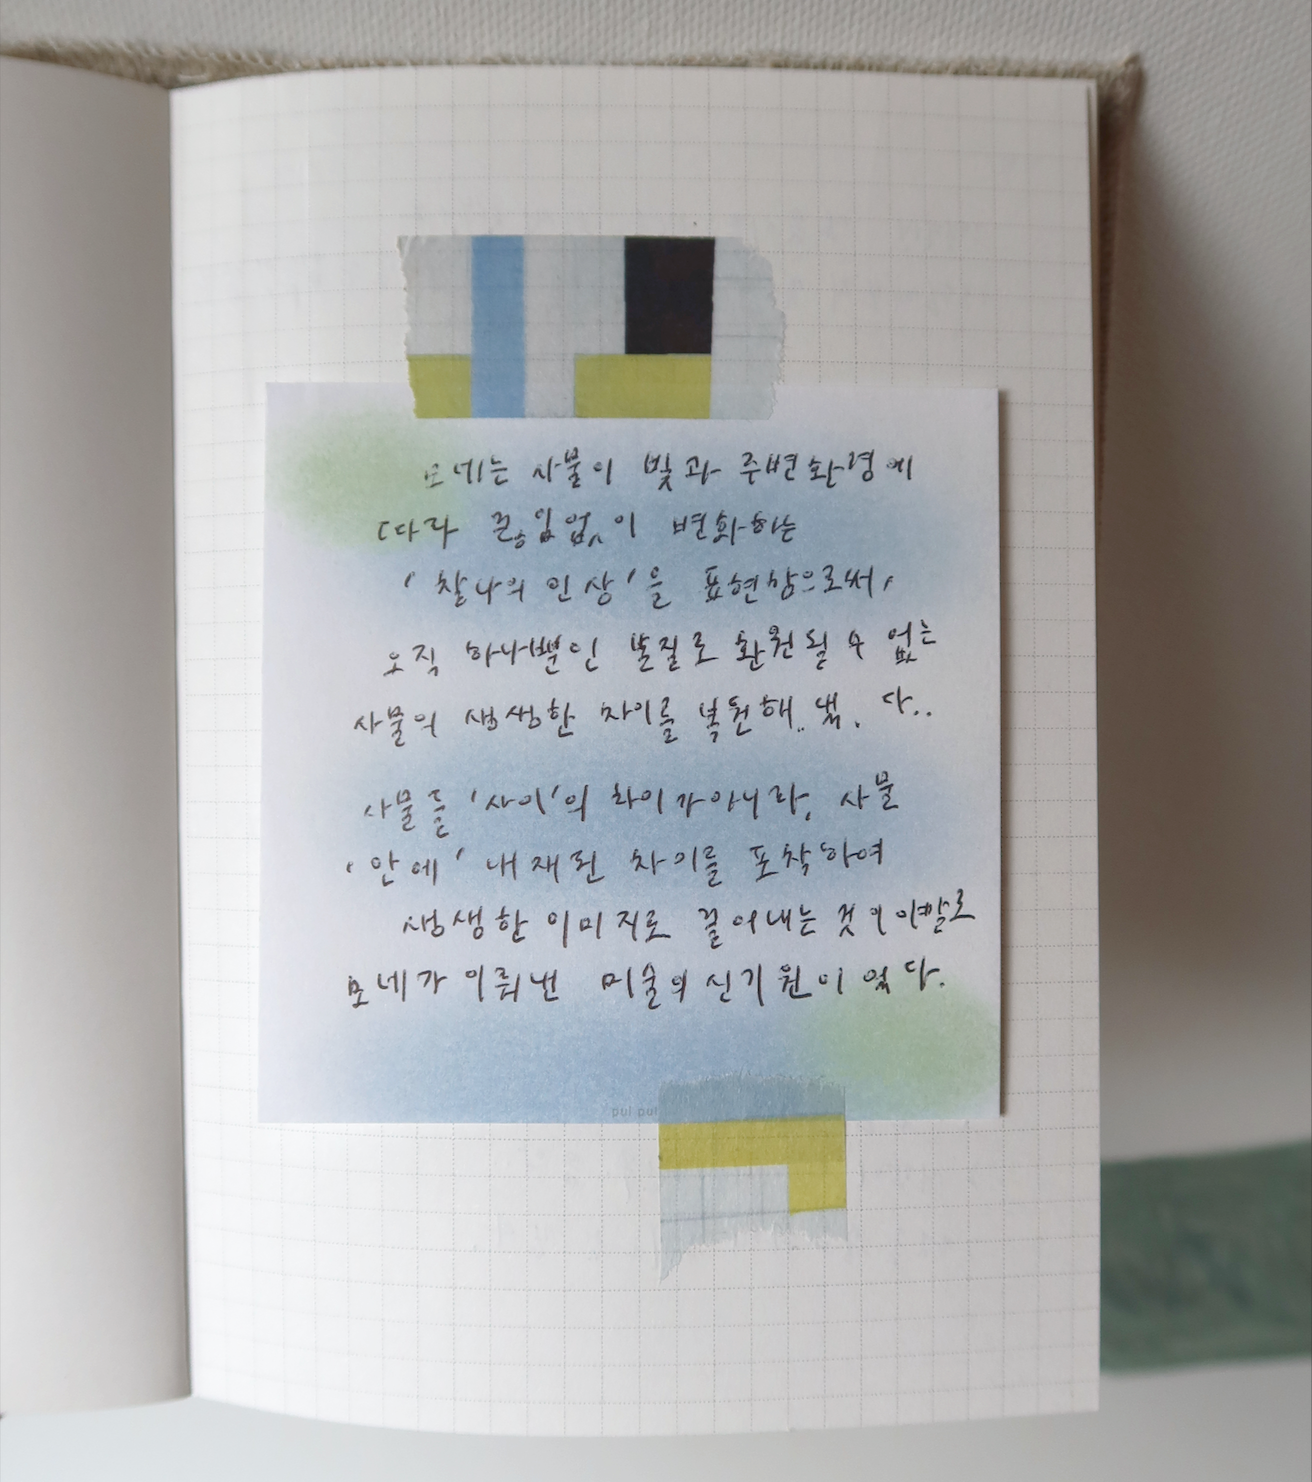 모네는 사물이 빛과 주변환경에
따라 끊임없이 변화하는
'찰나의 인상'을 표현함으로써,
오직 하나뿐인 본질로 환원될 수 없는
사물의 생생한 차이를 복원해..냈.다..
사물들 '사이'의 차이가 아니라, 사물
'안에' 내재된 차이를 포착하여
생생한 이미지로 끌어내는 것이 이야말로
모네가 이뤄낸 미술의 신기원이었다.
pul pul